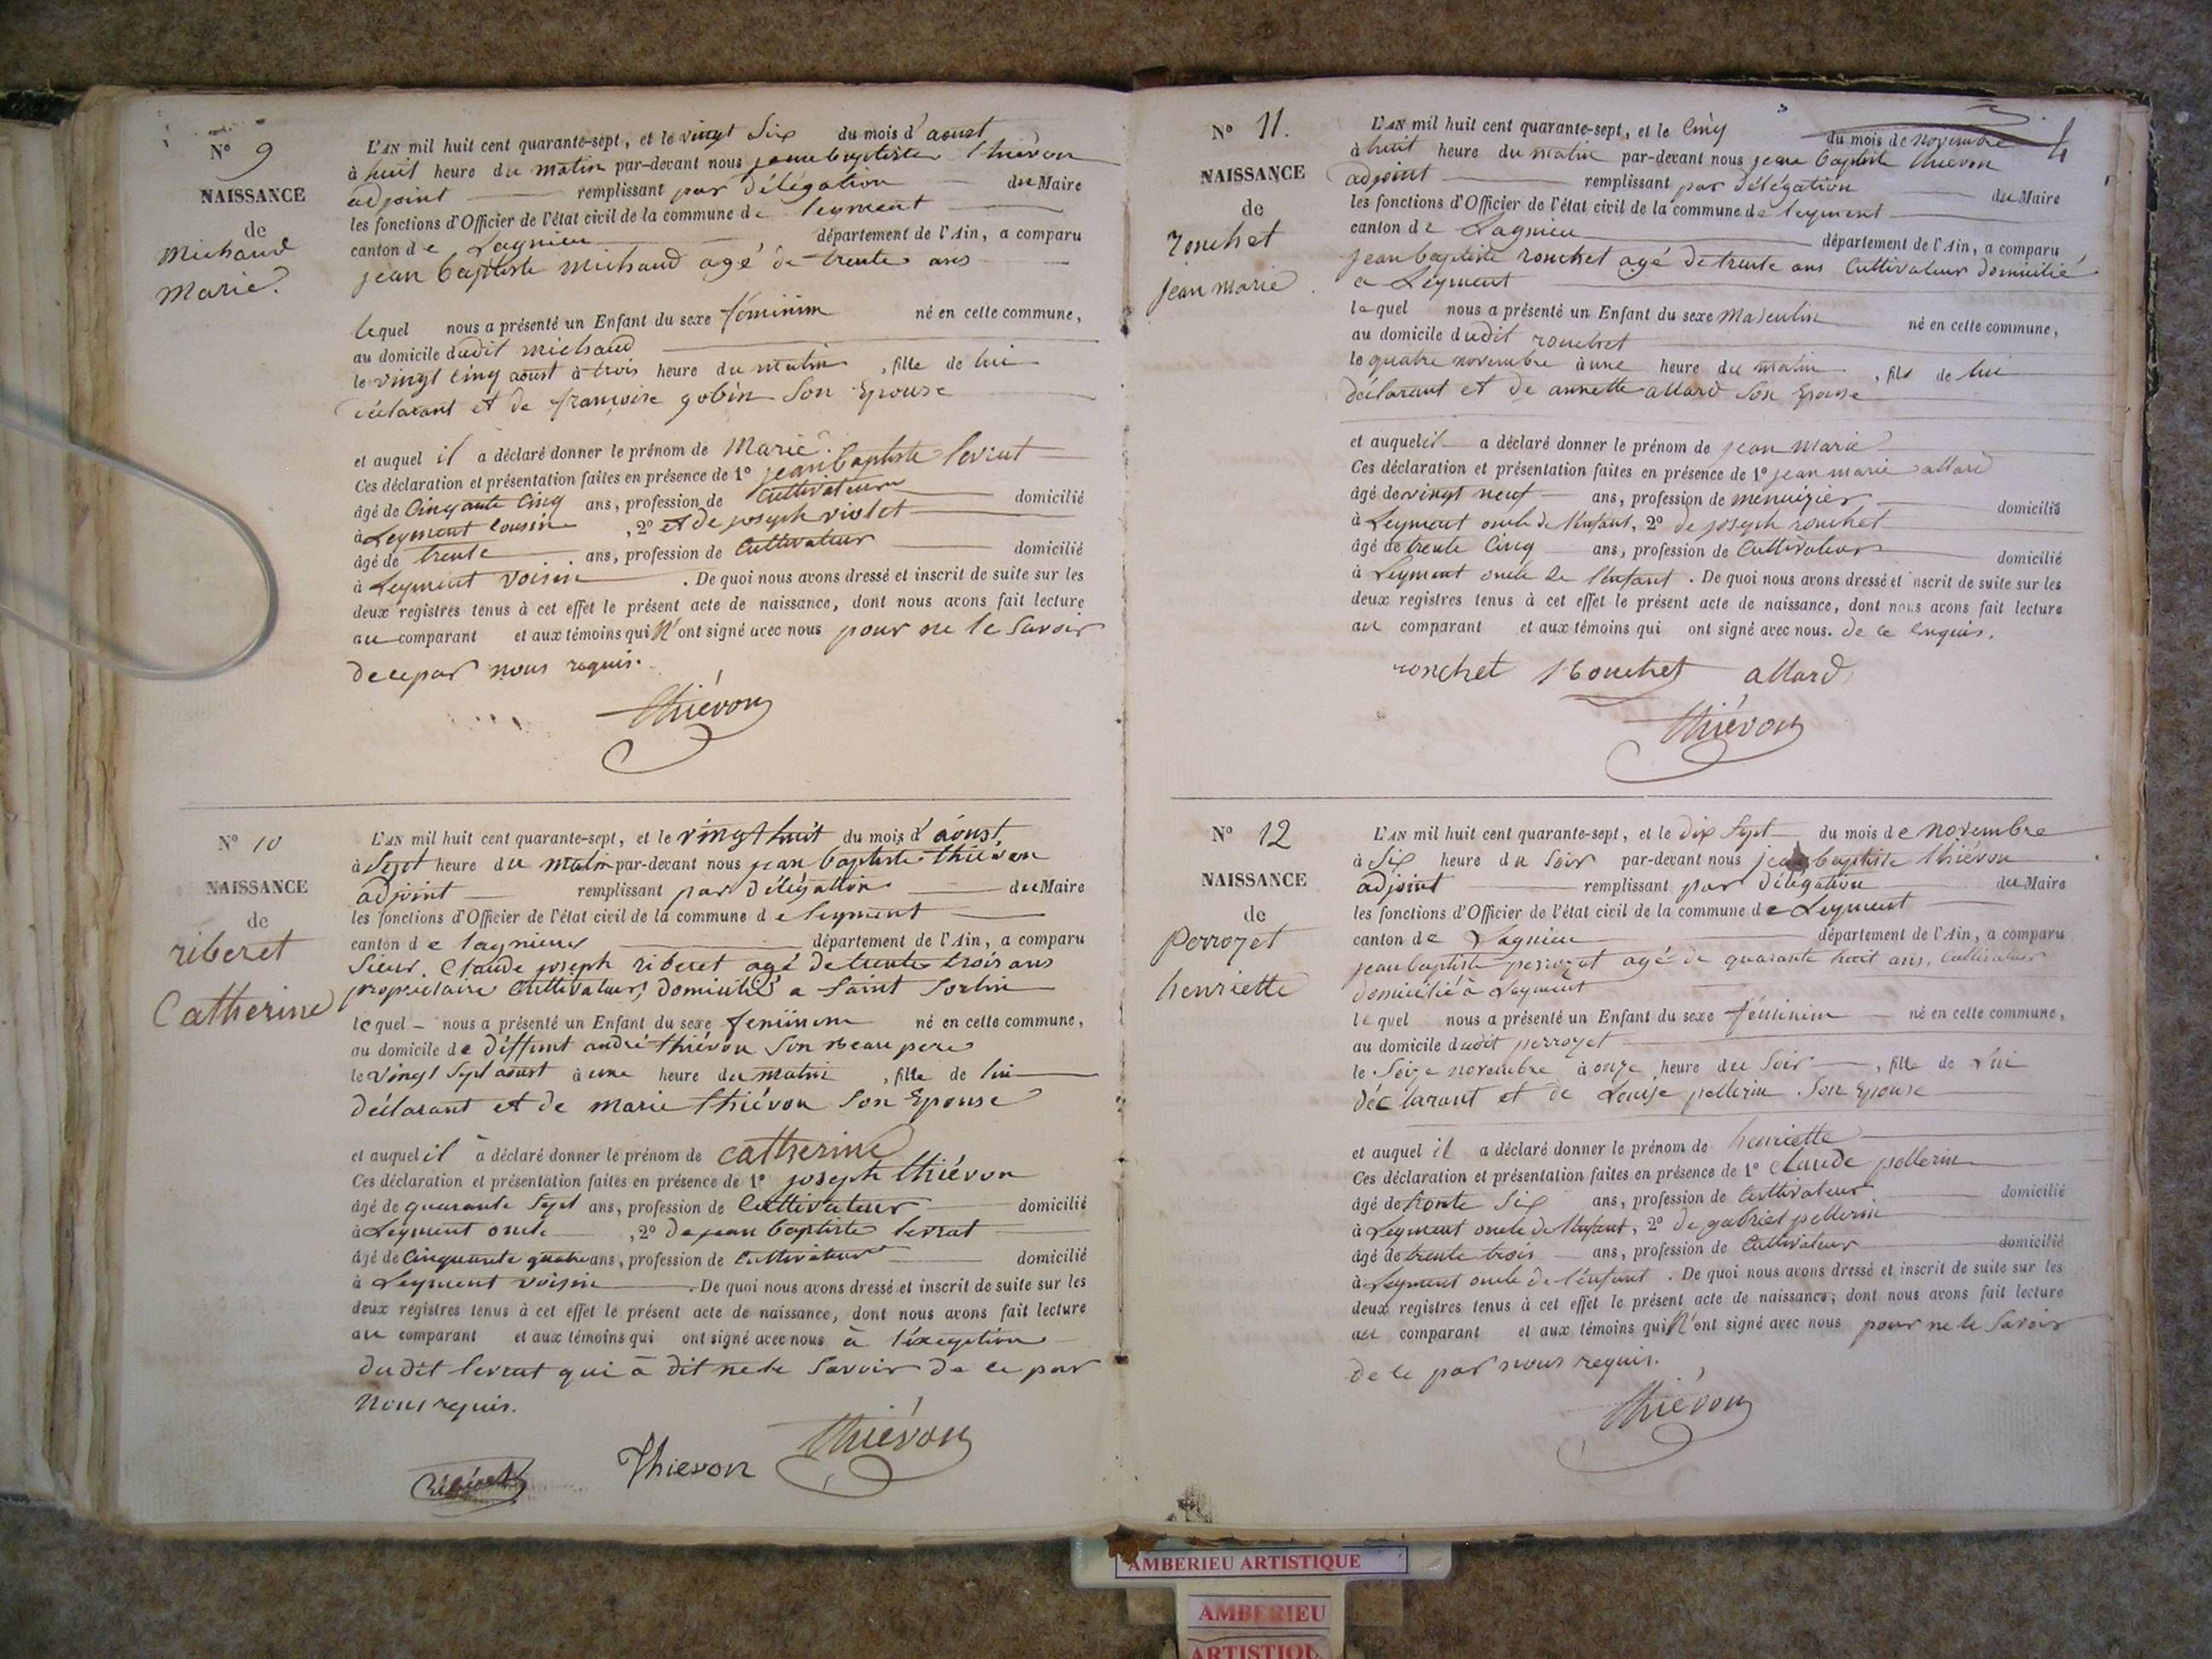 N° 9
NAISSANCE
de
Michaud
Marie.
L'AN mil huit cent quarante-sept, et le vingt Six du mois d'aoust
à huit heure du matin par-devant nous jean baptiste thiévon
adjoint remplissant par délégation du Maire
les fonctions d'Officier de l'état civil de la commune de leyment
canton de Lagnieu département de l'Ain, a comparu
jean baptiste michaud agé de trente ans
lequel nous a présenté un Enfant du sexe féminim né en cette commune,
au domicile dudit michaud
le vingt cinq aoust à trois heure du matin, fille de lui
déclarant et de françoise gobin Son Epouse
et auquel il a déclaré donner le prénom de Marie.
Ces déclaration et présentation faites en présence de 1° jean baptiste levrat
âgé de Cinquante Cinq ans, profession de Cultivateur domicilié
à Leyment cousin, 2° et de joseph violet
âgé de trente ans, profession de Cultivateur domicilié
à Leyment voisin. De quoi nous avons dressé et inscrit de suite sur les
deux registres tenus à cet effet le présent acte de naissance, dont nous avons fait lecture
au comparant et aux témoins qui N'ont signé avec nous pour ne le Savoir
de ce par nous requis.
thiévon
N° 10
NAISSANCE
de
riberet
Catherine
L'AN mil huit cent quarante-sept, et le vingt huit du mois d'aoust
à Sept heure du matin par-devant nous jean baptiste thiévon
adjoint remplissant par délégation du Maire
les fonctions d'Officier de l'état civil de la commune de leyment
canton de lagnieu département de l'Ain, a comparu
Sieur. Claude joseph riberet agé de trente trois ans
propriétaire Cultivateur, domicilié a Saint Sorlin
lequel nous a présenté un Enfant du sexe feminim né en cette commune,
au domicile de déffunt andré thiévon Son Beau pere
le vingt Sept aoust à une heure du matin, fille de lui
déclarant et de marie thiévon Son Epouse
et auquel il à déclaré donner le prénom de Catherine
Ces déclaration et présentation faites en présence de 1° joseph thiévon
âgé de quarante Sept ans, profession de Cultivateur domicilié
à Leyment oncle, 2° de jean baptiste levrat
âgé de Cinquante quatre ans, profession de Cultivateur domicilié
à Leyment voisin. De quoi nous avons dressé et inscrit de suite sur les
deux registres tenus à cet effet le présent acte de naissance, dont nous avons fait lecture
au comparant et aux témoins qui ont signé avec nous à l'éxeption
du dit levrat qui à dit ne le Savoir de ce par
nous requis.
Thievon thiévon
N° 11.
NAISSANCE
de
ronchet
jean marie
L'AN mil huit cent quarante-sept, et le Cinq du mois de novembre
à huit heure du matin par-devant nous jean baptiste thiévon
adjoint remplissant par délégation du Maire
les fonctions d'Officier de l'état civil de la commune de leyment
canton de Lagnieu département de l'Ain, a comparu
jean baptiste ronchet agé de trente ans Cultivateur domicilié
a Leyment
lequel nous a présenté un Enfant du sexe Masculin né en cette commune,
au domicile dudit ronchet
le quatre novembre à une heure du matin, fils de lui
déclarant et de annette allard Son Epouse
et auquel il a déclaré donner le prénom de jean Marie
Ces déclaration et présentation faites en présence de 1° jean marie allard
âgé de vingt neuf ans, profession de menuizier domicilié
à Leyment oncle de l'enfant, 2° de joseph ronchet
âgé de trente Cinq ans, profession de Cultivateur domicilié
à Leyment oncle de l'enfant. De quoi nous avons dressé et inscrit de suite sur les
deux registres tenus à cet effet le présent acte de naissance, dont nous avons fait lecture
au comparant et aux témoins qui ont signé avec nous. de ce enquis.
ronchet Ronchet allard
thiévon
N° 12
NAISSANCE
de
perrozet
henriette
L'AN mil huit cent quarante-sept, et le dix Sept du mois de novembre
à Six heure du Soir par-devant nous jean baptiste thiévon
adjoint remplissant par délégation du Maire
les fonctions d'Officier de l'état civil de la commune de Leyment
canton de Lagnieu département de l'Ain, a comparu
jean baptiste perrozet agé de quarante huit ans, Cultivateur
domicilié à Leyment
lequel nous a présenté un Enfant du sexe féminim né en cette commune,
au domicile dudit perrozet
le Seize novembre à onze heure du Soir, fille de Lui
déclarant et de Louise pellerin. Son Epouse
et auquel il a déclaré donner le prénom de henriette
Ces déclaration et présentation faites en présence de 1° Claude pellerin
âgé de trente Six ans, profession de Cultivateur. domicilié
à Leyment oncle de l'enfant, 2° de gabriel pellerin
âgé de trente trois ans, profession de Cultivateur domicilié
à Leyment oncle de l'enfant. De quoi nous avons dressé et inscrit de suite sur les
deux registres tenus à cet effet le présent acte de naissance, dont nous avons fait lecture
au comparant et aux témoins qui N'ont signé avec nous pour ne le Savoir
de ce par nous requis.
thiévon
AMBERIEU ARTISTIQUE
AMBERIEU
ARTISTIQUE